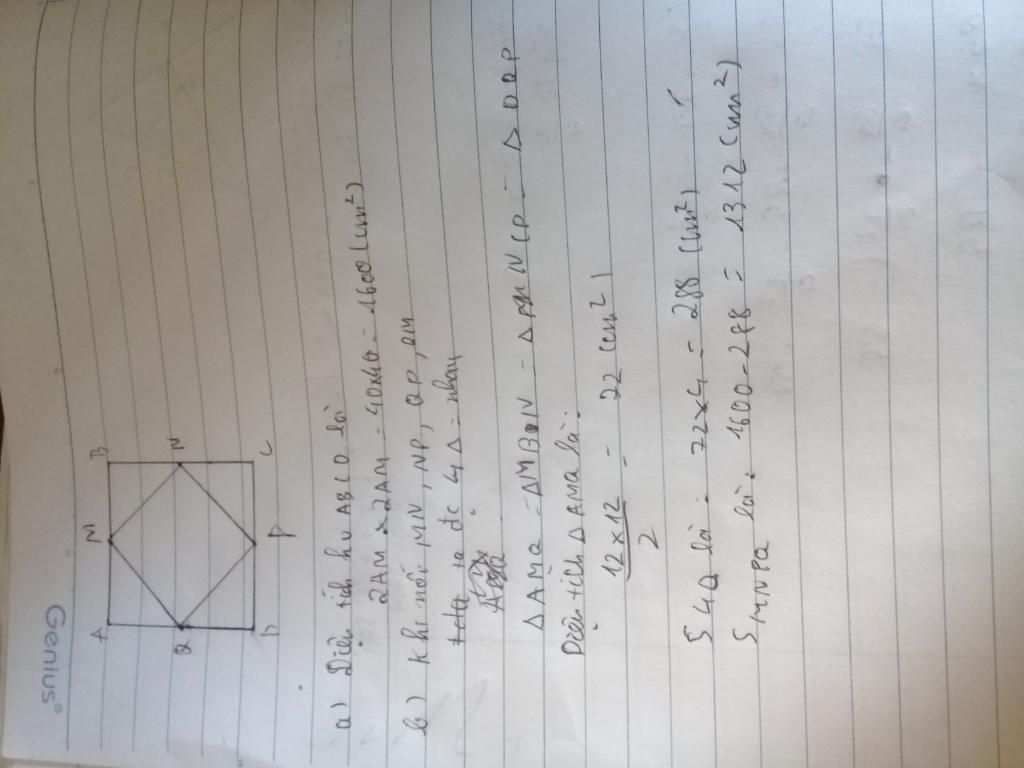 Genius
A M B
Q N
D P C
a) Diện tích hv ABCD là
2AM x 2AM = 40x40 = 1600 (cm²)
b) Khi nối MN, NP, QP, QM
ta đc 4 Δ = nhau
Δ AMQ = Δ MBN = Δ NCP = Δ DQP
Diện tích Δ AMQ là:
12 x 12
2
= 22 cm²)
S 4Δ là: 72x4 = 288 (cm²)
S MNPQ là: 1600 - 288 = 1312 (cm²)